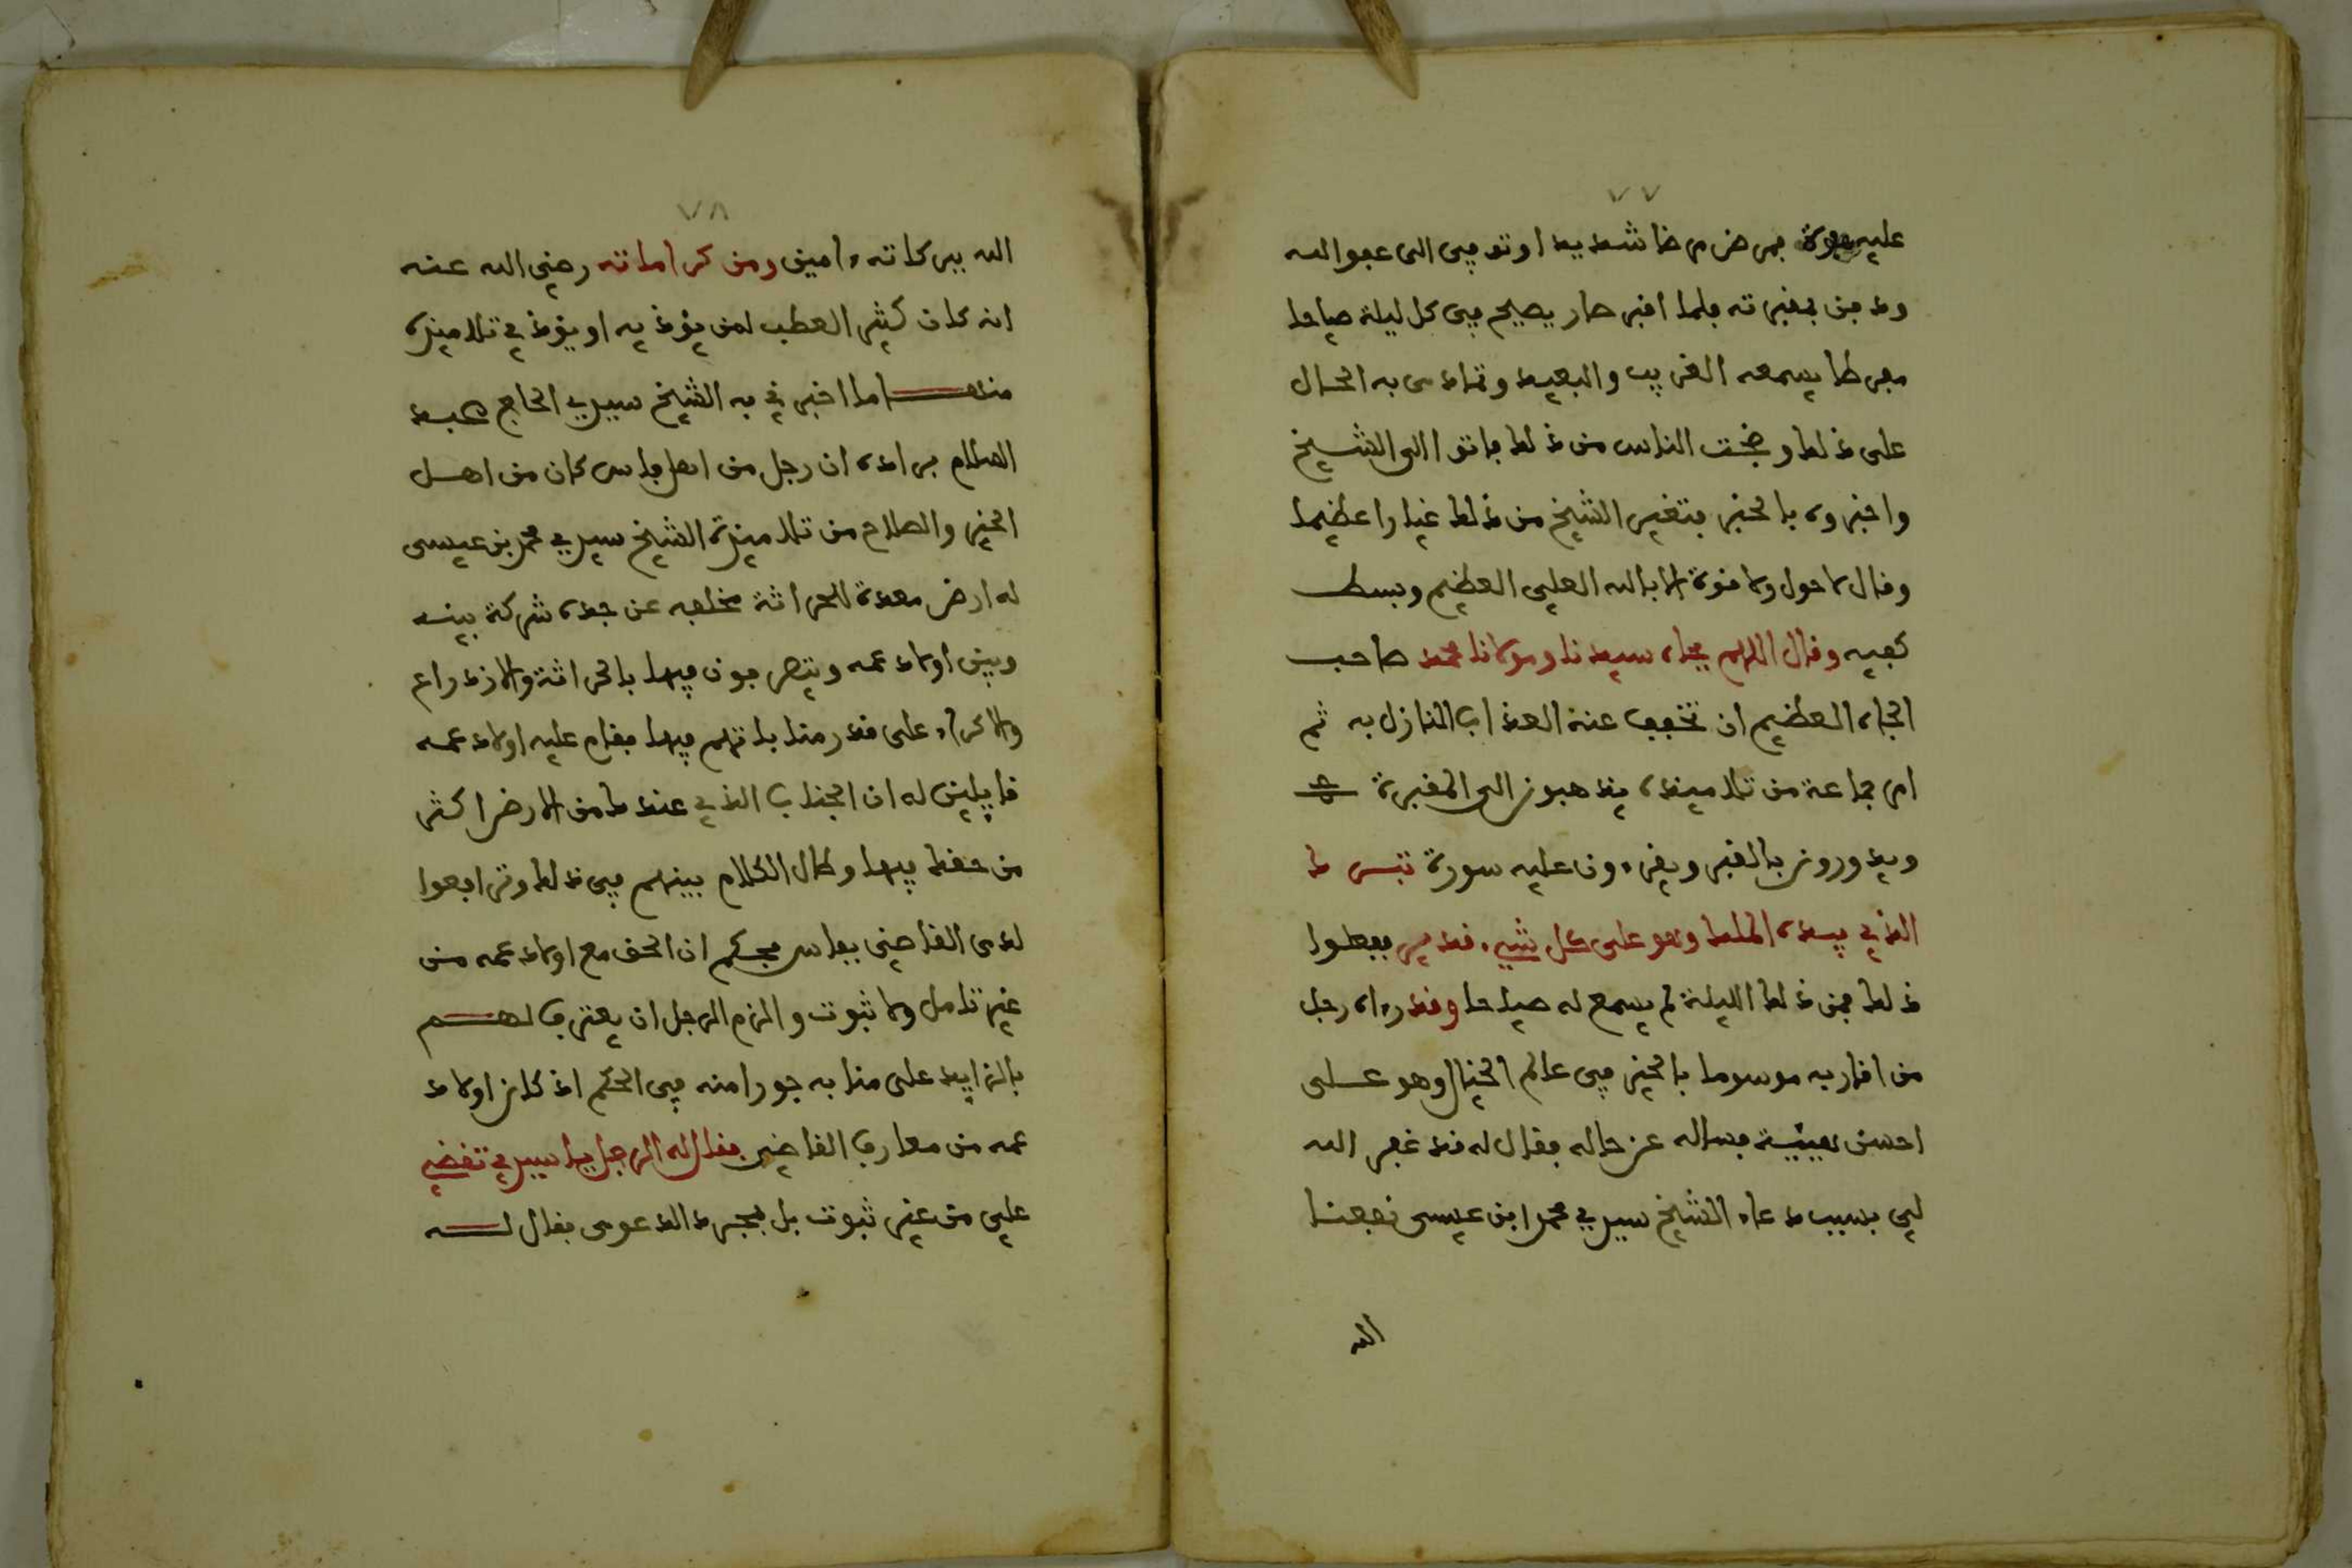 ٧٧
عليه دعوة فمرض مرضا شديدا وتوفي الى عفو الله
ودفن بمقبرته فلما اقبر صار يصيح في كل ليلة صياحا
مفرطا يسمعه القريب والبعيد وتمادى به الحال
على ذلك وضجت الناس من ذلك فاتوا الى الشيخ
واخبروه بالخبر فتغير الشيخ من ذلك غيارا عظيما
وقال لا حول ولا قوة الا بالله العلي العظيم وبسط
كفيه وقال اللهم بجاه سيدنا ومولانا محمد صاحب
الجاه العظيم ان تخفف عنه العذاب النازل به ثم
امر جماعة من تلاميذه يذهبون الى المقبرة
ويدورون بالقبر ويقرءون عليه سورة تبرك
الذي بيده الملك وهو على كل شيء قدير ففعلوا
ذلك فمن ذلك الليلة لم يسمع له صياحا وقد رءاه رجل
من اقاربه موسوما بالخير في عالم الخيال وهو على
احسن هيئية فساله عن حاله فقال له قد غفر الله
لي بسبب دعاء الشيخ سيدي محمد ابن عيسى نفعنا
الله
٧٨
الله ببركاته ءامين ومن كراماته رضي الله عنه
انه كان كثير العطب لمن يؤذيه او يؤذي تلاميذه
منها ما اخبرني به الشيخ سيدي الحاج عبد
السلام براده ان رجل من اهل فاس كان من اهل
الخير والصلاح من تلاميذة الشيخ سيدي محمد بن عيسى
له ارض معدة للحراثة مخلفه عن جده شركة بينه
وبين اولاد عمه ويتصرفون فيها بالحراثة والازدراع
والاكراء على قدر منابتهم فيها فقام عليه اولاد عمه
قايلين له ان الجناب الذي عندك من الارض اكثر
من حقك فيها وطال الكلام بينهم في ذلك وترافعوا
لدى القاضي بفاس فحكم ان الحق مع اولاد عمه من
غير تامل ولا ثبوت والزم الرجل ان يعترف لهم
بالزايد على منابه جورا منه في الحكم اذ كان اولاد
عمه من معارف القاضي فقال له الرجل يا سيدي تقضي
علي من غير ثبوت بل بمجرد الدعوى فقال له